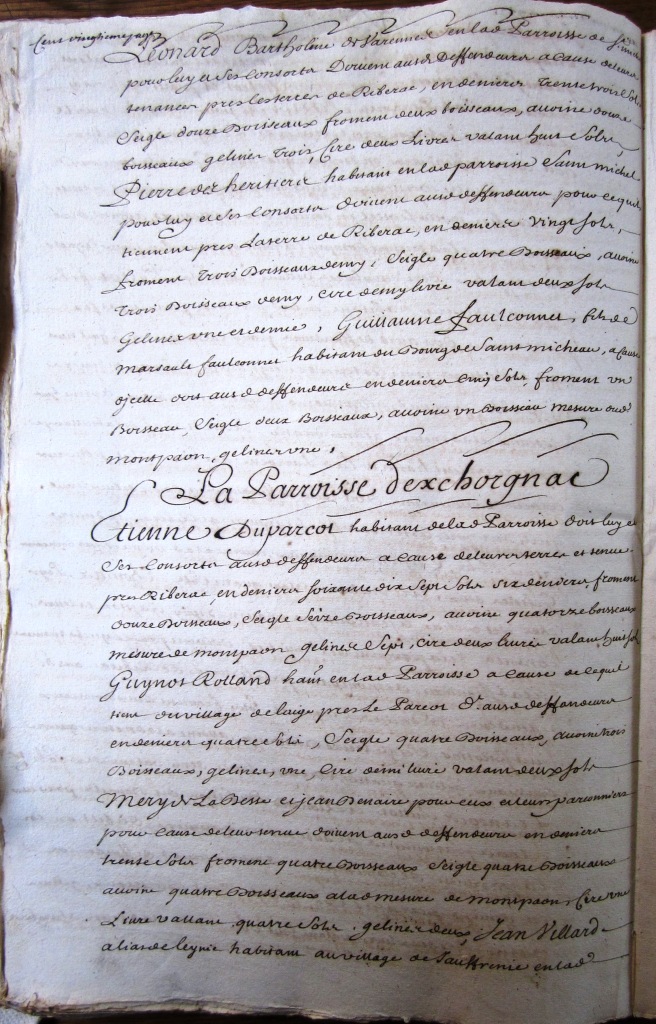 Cent vingtieme page
Leonard Bartholme de Varenne en lad Parroisse de
pour luy et ses consorts doivent ausd deffendeurs a cause de leurs
tenances pres les terres de Riberac, en deniers trente trois sols
seigle douze boisseaux froment deux boisseaux, avoine douze
boisseaux gelines trois, cire deux livres valant huit sols,
Pierre des heritiers habitant en lad parroisse Saint michel
pour luy et ses consorts doivent ausd deffendeurs pour ce quil
tiennent pres Laserre de Riberac, en deniers vingt sols,
froment trois Boisseaux demy, seigle quatre Boisseaux, avoine
trois Boisseaux demy, cire demy livre valant deux sols
Gelines une et demie, Guillaume faulconnet, fils de
marsault faulconnet habitant du Bourg de Saint micheau, a cause
dicelle doit ausd deffendeurs en deniers cinq sols, froment un
Boisseau, seigle deux Boisseaux, avoine un Boisseau mesure dud
montpaon, gelines une,
La Parroisse dexchorgnac
Etienne Duparcot habitant de lad Parroisse doit luy et
ses consorts ausd deffendeurs a cause de leurs terres et tenue
pres Riberac, en deniers soixante dix sept sols six deniers, froment
douze Boisseaux, seigle seize Boisseaux, avoine quatorze boisseaux
mesure de montpaon gelines sept, cire deux livres valant huit sols
Guynot Rolland hant en lad Parroisse a cause de ce quil
tient du village de laige pres Le Parcot dt ausd deffendeurs
en deniers quatre sols, seigle quatre Boisseaux, avoine trois
Boisseaux, gelines, une, cire demi livre valant deux sols
Mery de La Besse et jean Benaire pour eux et leurs parconniers
pour cause de leur tenue doivent ausd deffendeurs en deniers
trente sols froment quatre Boisseaux seigle quatre Boisseaux
avoine quatre Boisseaux a lad mesure de montpaon, cire une
Livre vallant quatre sols, gelines deux, Jean Villard
alias de leynie habitant au village de en lad